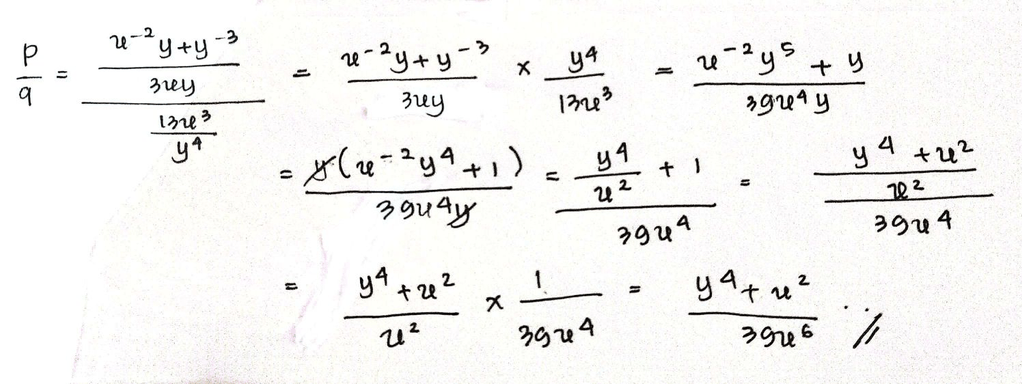 p/q = ((x^-2 y + y^-3)/(3xy))/((13x^3)/(y^4)) = (x^-2 y + y^-3)/(3xy) × y^4/(13x^3) = (x^-2 y^5 + y)/(39x^4 y)
= y(x^-2 y^4 + 1)/(39x^4 y) = (y^4/x^2 + 1)/(39x^4) = ((y^4 + x^2)/x^2)/(39x^4)
= (y^4 + x^2)/x^2 × 1/(39x^4) = (y^4 + x^2)/(39x^6) //